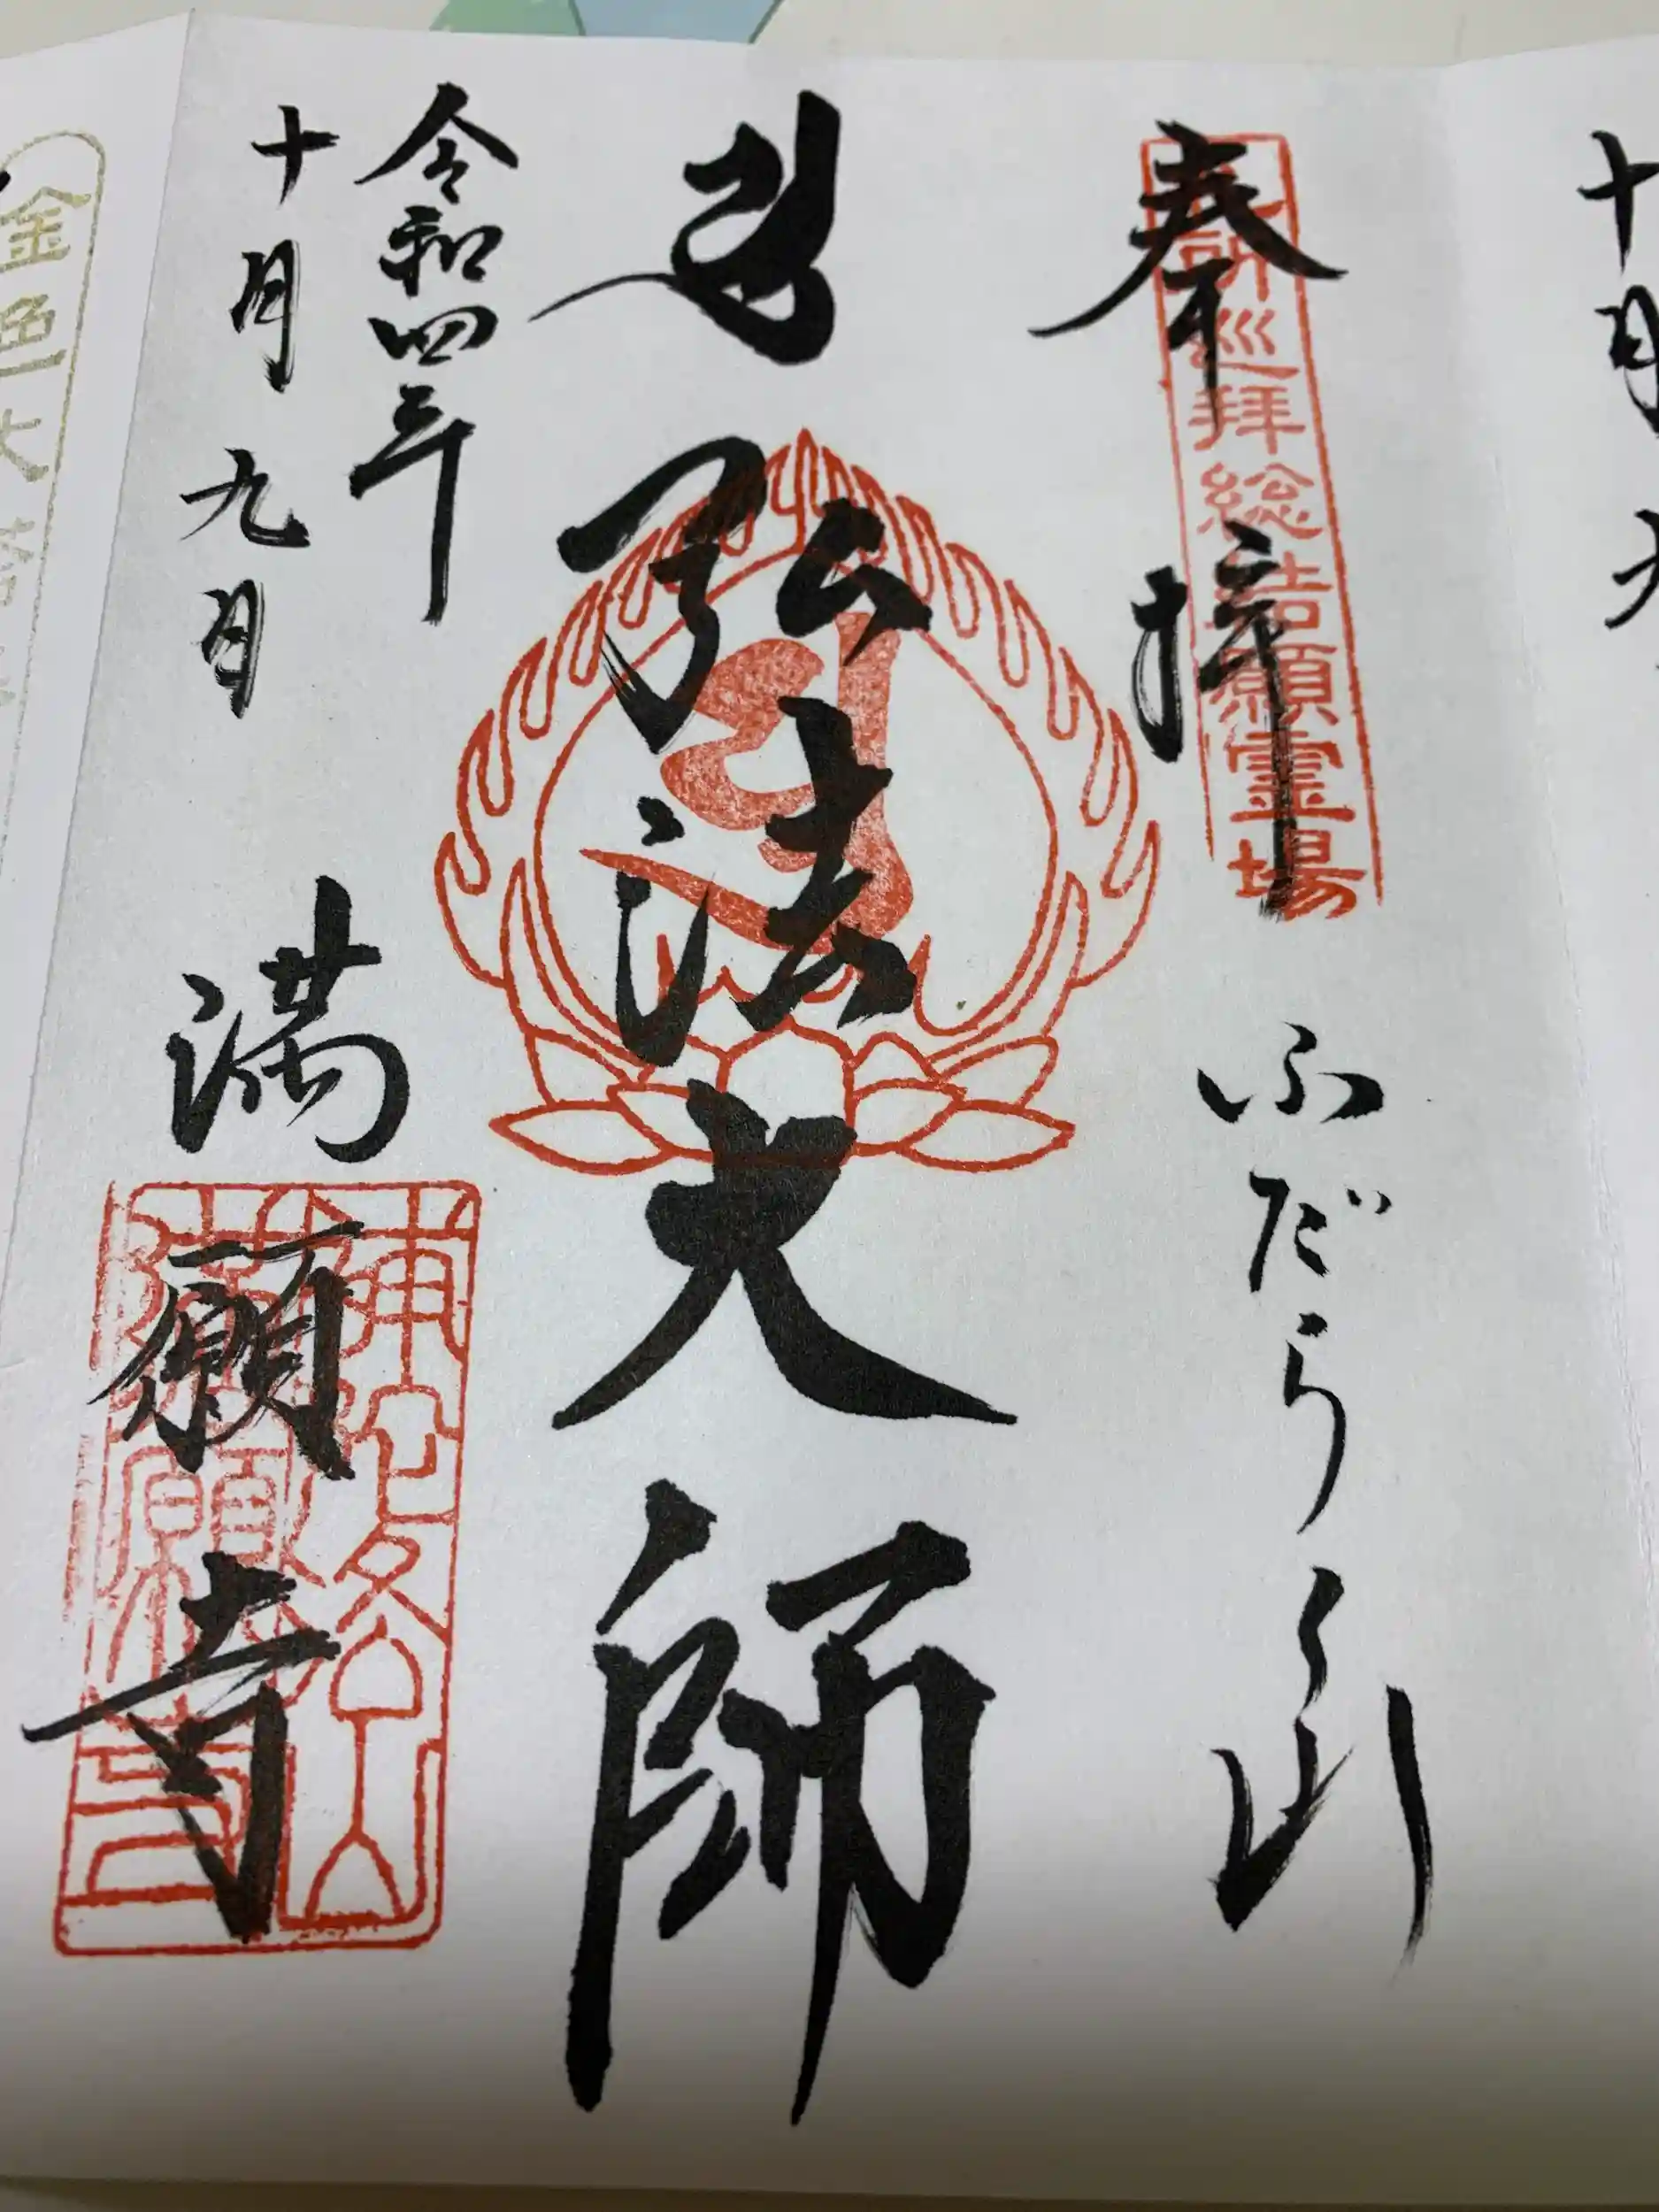 十月九
奉拝
巡拝総結願霊場
ふだらく山
弘法大師
令和四年
十月九日
満願寺
補陀洛山
満願寺
金色大